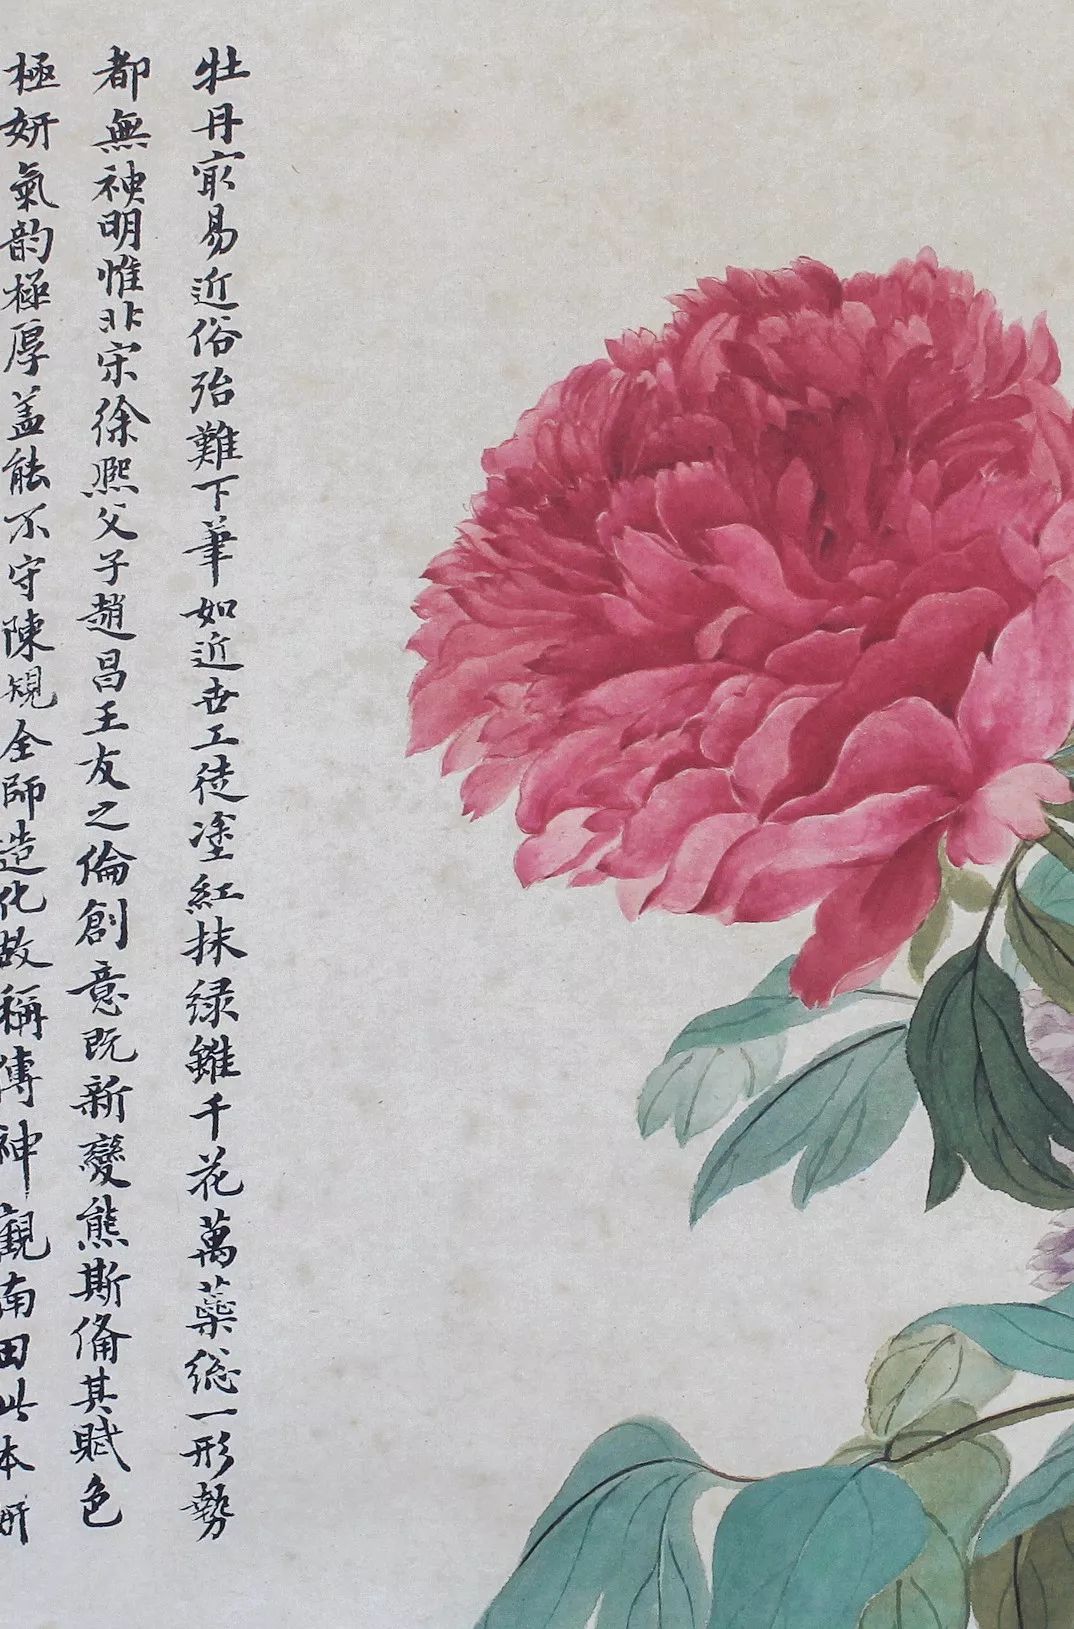 牡丹冣易近俗殆難下筆如近世工徒塗紅抹緑雖千花萬蘂総一形勢
都無神明惟非宋徐熙父子趙昌王友之倫創意既新變態斯備其賦色
極妍氣韵極厚盖能不守陳規全師造化故稱傳神觀南田此本